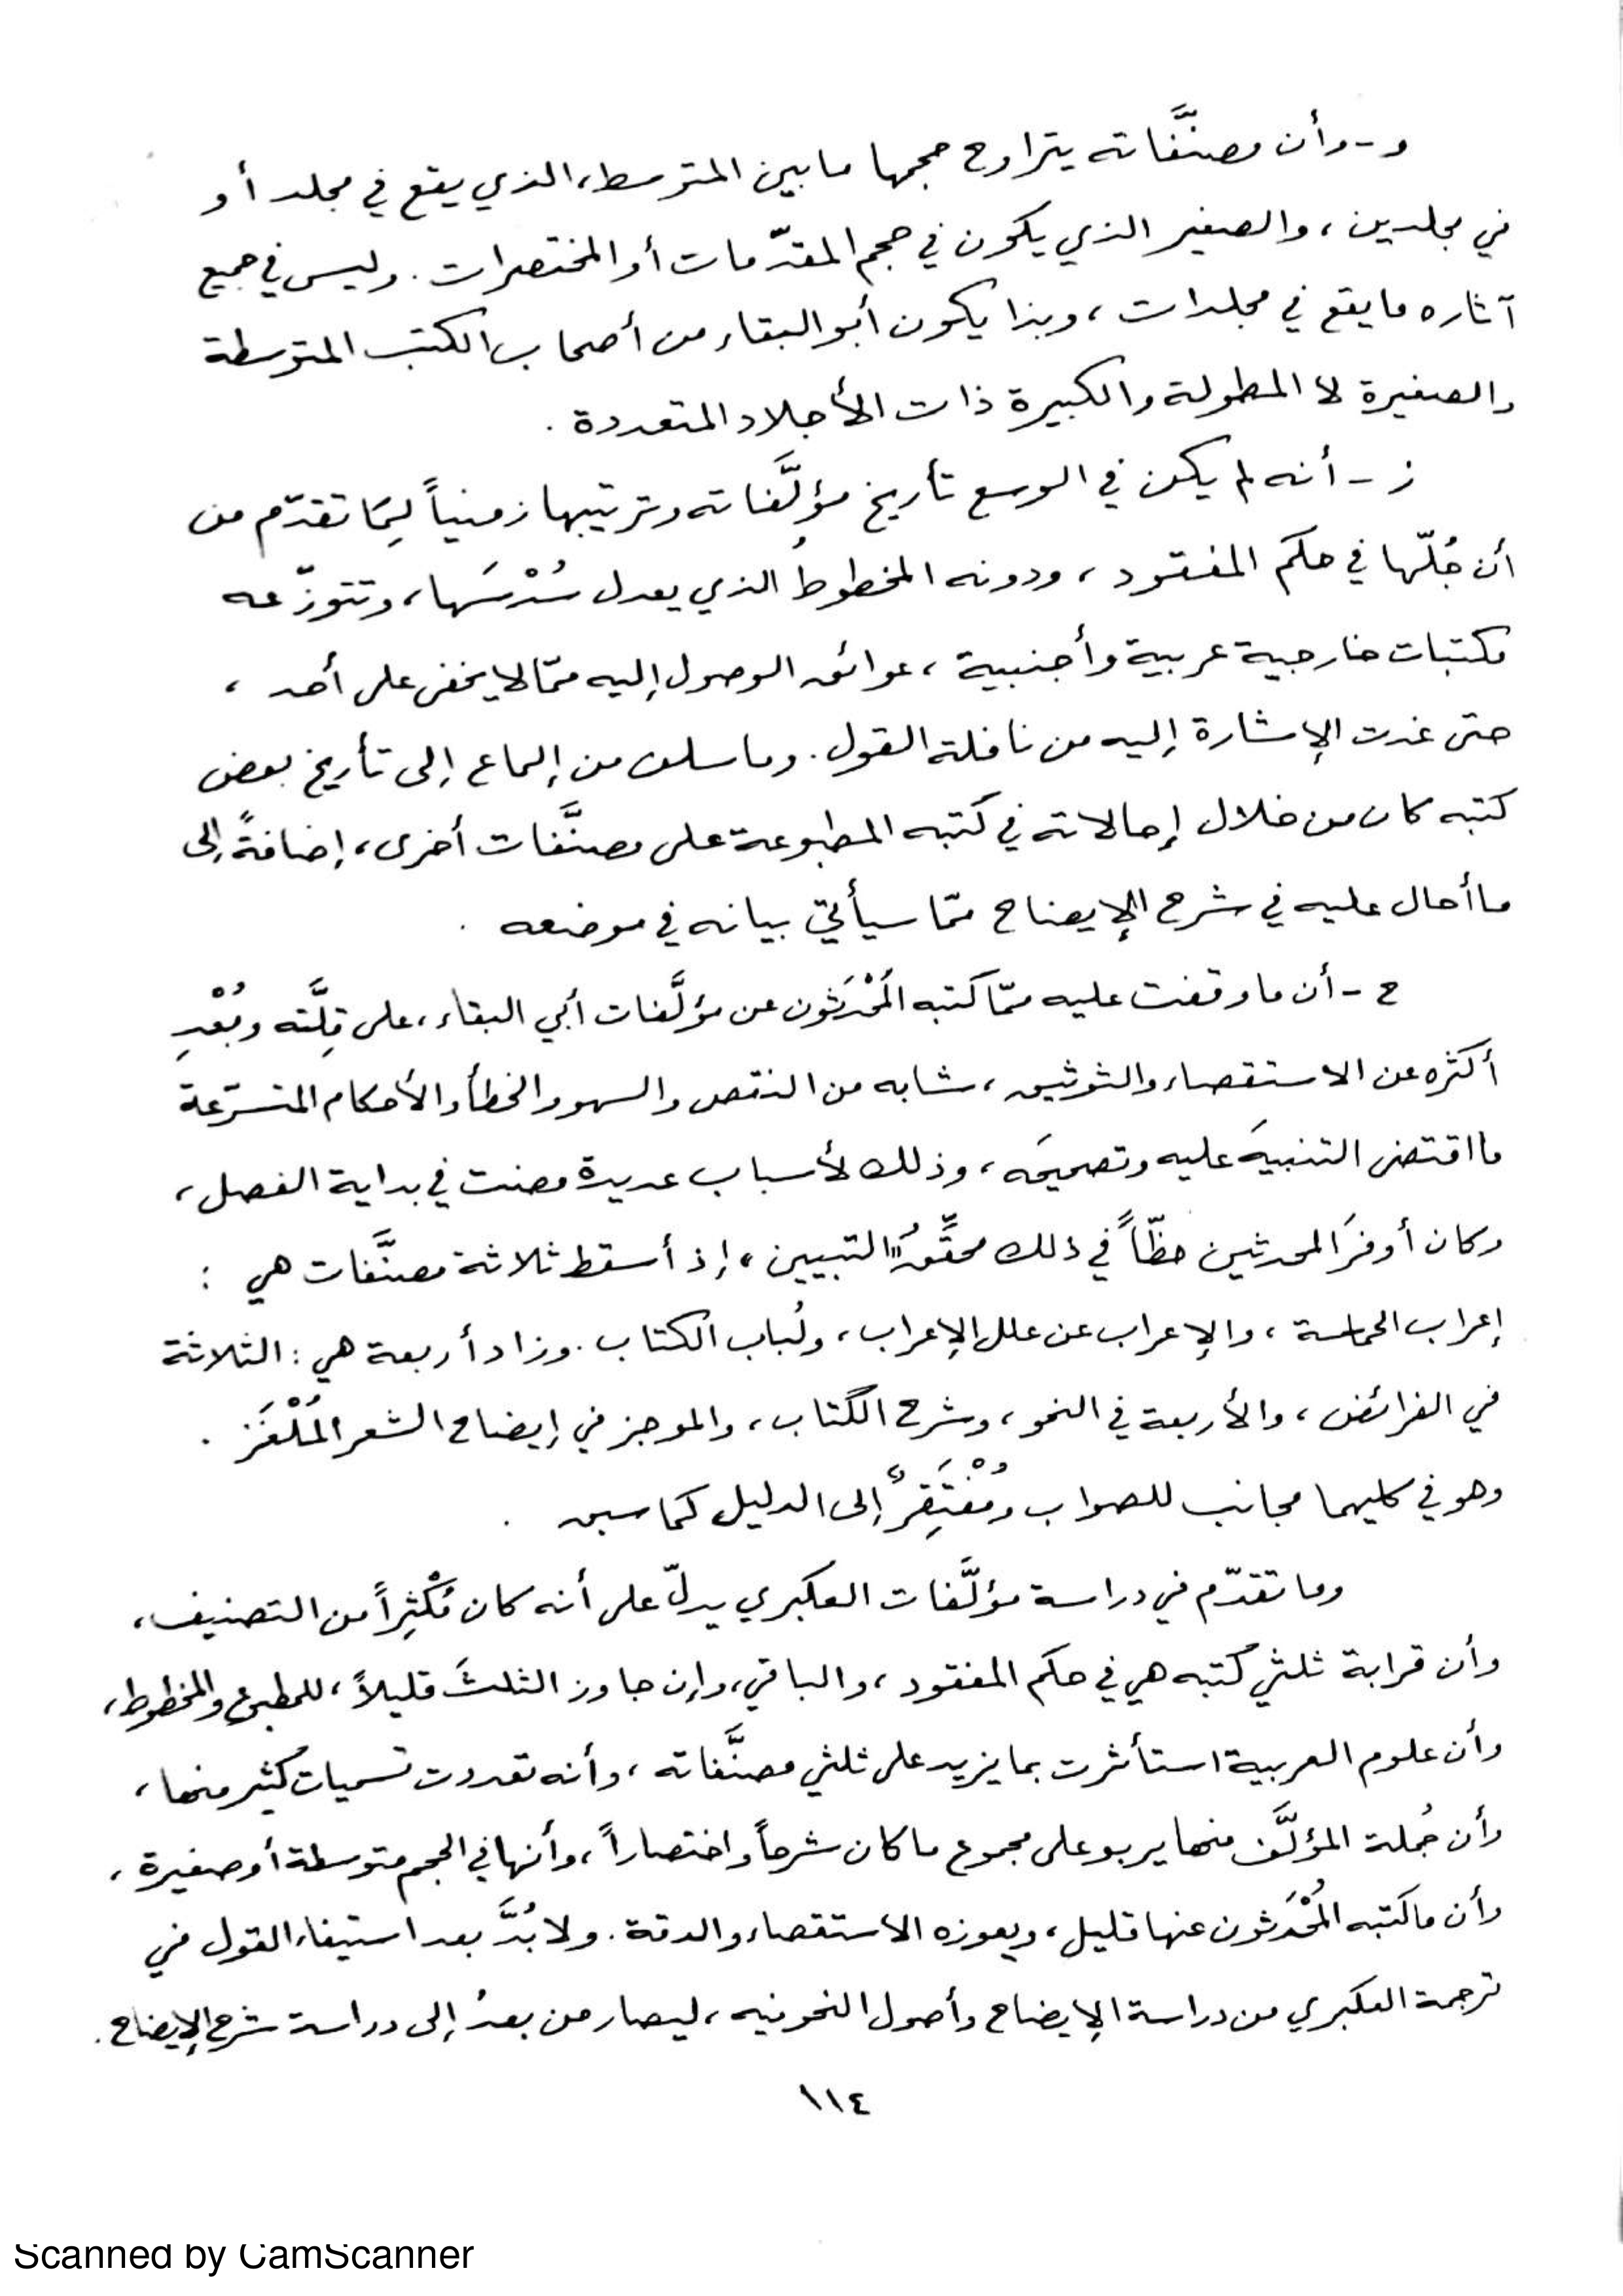 و - وأن مصنَّفاته يتراوح حجمها ما بين المتوسط، الذي يقع في مجلد أو
في مجلدين، والصغير الذي يكون في حجم المقدّمات أو المختصرات. وليس في جميع
آثاره ما يقع في مجلدات، وبذا يكون أبو البقاء من أصحاب الكتب المتوسطة
والصغيرة لا المطولة والكبيرة ذات الأجلاد المتعددة.
ز - أنه لم يكن في الوسع تأريخ مؤلَّفاته وترتيبها زمنياً لِمَا تقدّم من
أن جُلّها في حكم المفقود، ودونه المخطوطُ الذي يعدل سُدْسَها، وتتوزّعه
مكتبات خارجية عربية وأجنبية، عوائق الوصول إليه ممّا لا يخفى على أحد،
حتى غدت الإشارة إليه من نافلة القول. وما سلف من إلماع إلى تأريخ بعض
كتبه كان من خلال إحالاته في كتبه المطبوعة على مصنَّفات أخرى، إضافةً إلى
ما أحال عليه في شرح الإيضاح ممّا سيأتي بيانه في موضعه.
ح - أن ما وقفت عليه ممّا كتبه المُحْدَثون عن مؤلَّفات أبي البقاء، على قِلَّته وبُعْدِ
أكثره عن الاستقصاء والتوثيق، شابه من النقص والسهو والخطأ والأحكام المتسرّعة
ما اقتضى التنبيهَ عليه وتصحيحَه، وذلك لأسباب عديدة مضت في بداية الفصل،
وكان أوفرَ المحدثين حظّاً في ذلك محقِّقُ «التبيين» إذ أسقط ثلاثة مصنَّفات هي :
إعراب الحماسة، والإعراب عن علل الإعراب، ولُباب الكتاب. وزاد أربعة هي : الثلاثة
في الفرائض، والأربعة في النحو، وشرح الكتاب، والموجز في إيضاح الشعر المُلْغَز.
وهو في كليهما مجانب للصواب ومُفْتَقِرٌ إلى الدليل كما سبق.
وما تقدّم في دراسة مؤلَّفات العكبري يدلّ على أنه كان مُكْثِراً من التصنيف،
وأن قرابة ثلثي كتبه هي في حكم المفقود، والباقي، وإن جاوز الثلثَ قليلاً، للمطبوع والمخطوط،
وأن علوم العربية استأثرت بما يزيد على ثلثي مصنَّفاته، وأنه تعددت تسميات كثير منها،
وأن جُملة المؤلَّف منها يربو على مجموع ما كان شرحاً واختصاراً، وأنها في الحجم متوسطة أو صغيرة،
وأن ما كتبه المُحْدَثون عنها قليل، ويعوزه الاستقصاء والدقة. ولا بُدَّ بعد استيفاء القول في
ترجمة العكبري من دراسة الإيضاح وأصول النحو فيه، ليصار من بعدُ إلى دراسة شرح الإيضاح.
١١٤
Scanned by CamScanner